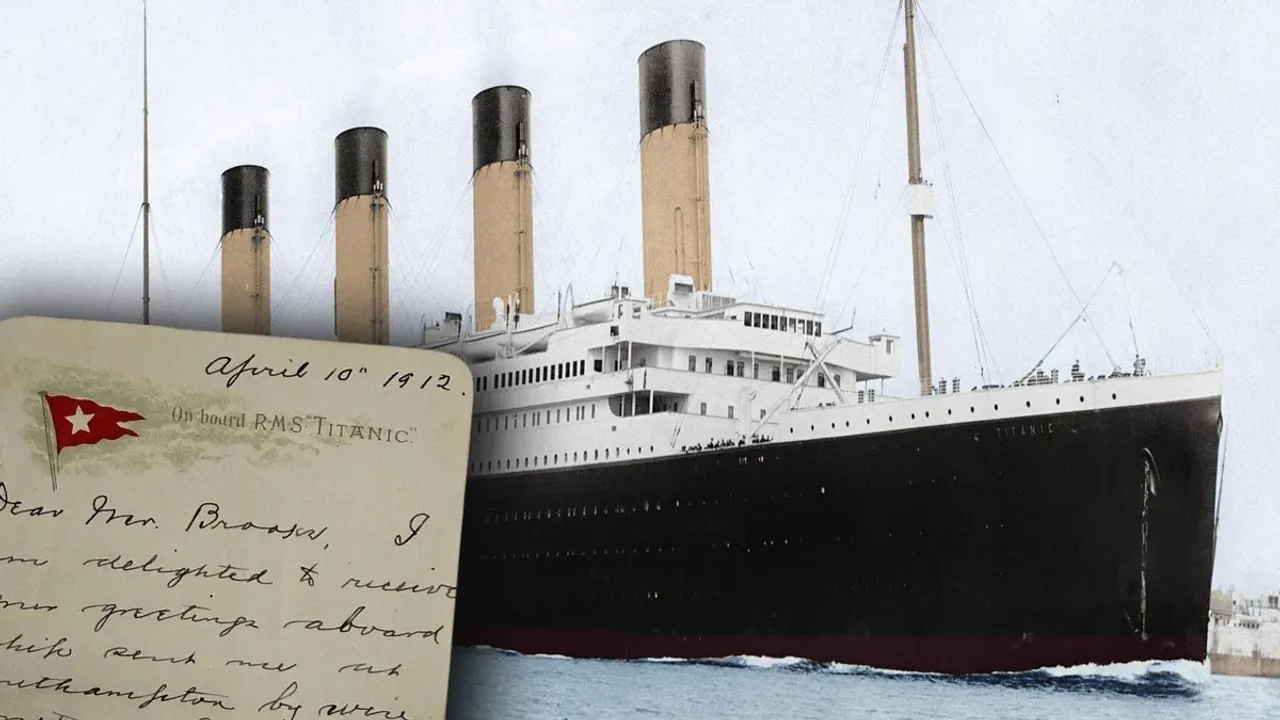 April 10" 1912.
On board R·M·S·"TITANIC".
Dear Mr. Brooks, I
delighted to receive
greetings aboard
sent me at
by wire
TITANIC